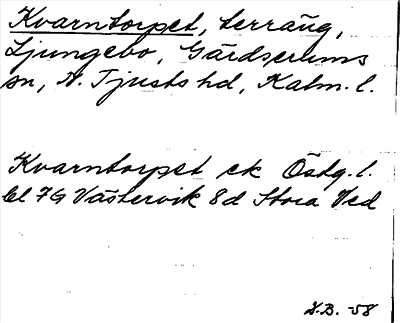 Kvarntorpet, terräng,
Ljungebo, Gärdserums
sn, N. Tjusts hd, Kalm. l.
Kvarntorpet ek Östg. l.
bl 7G Västervik 8d Stora Ved
58